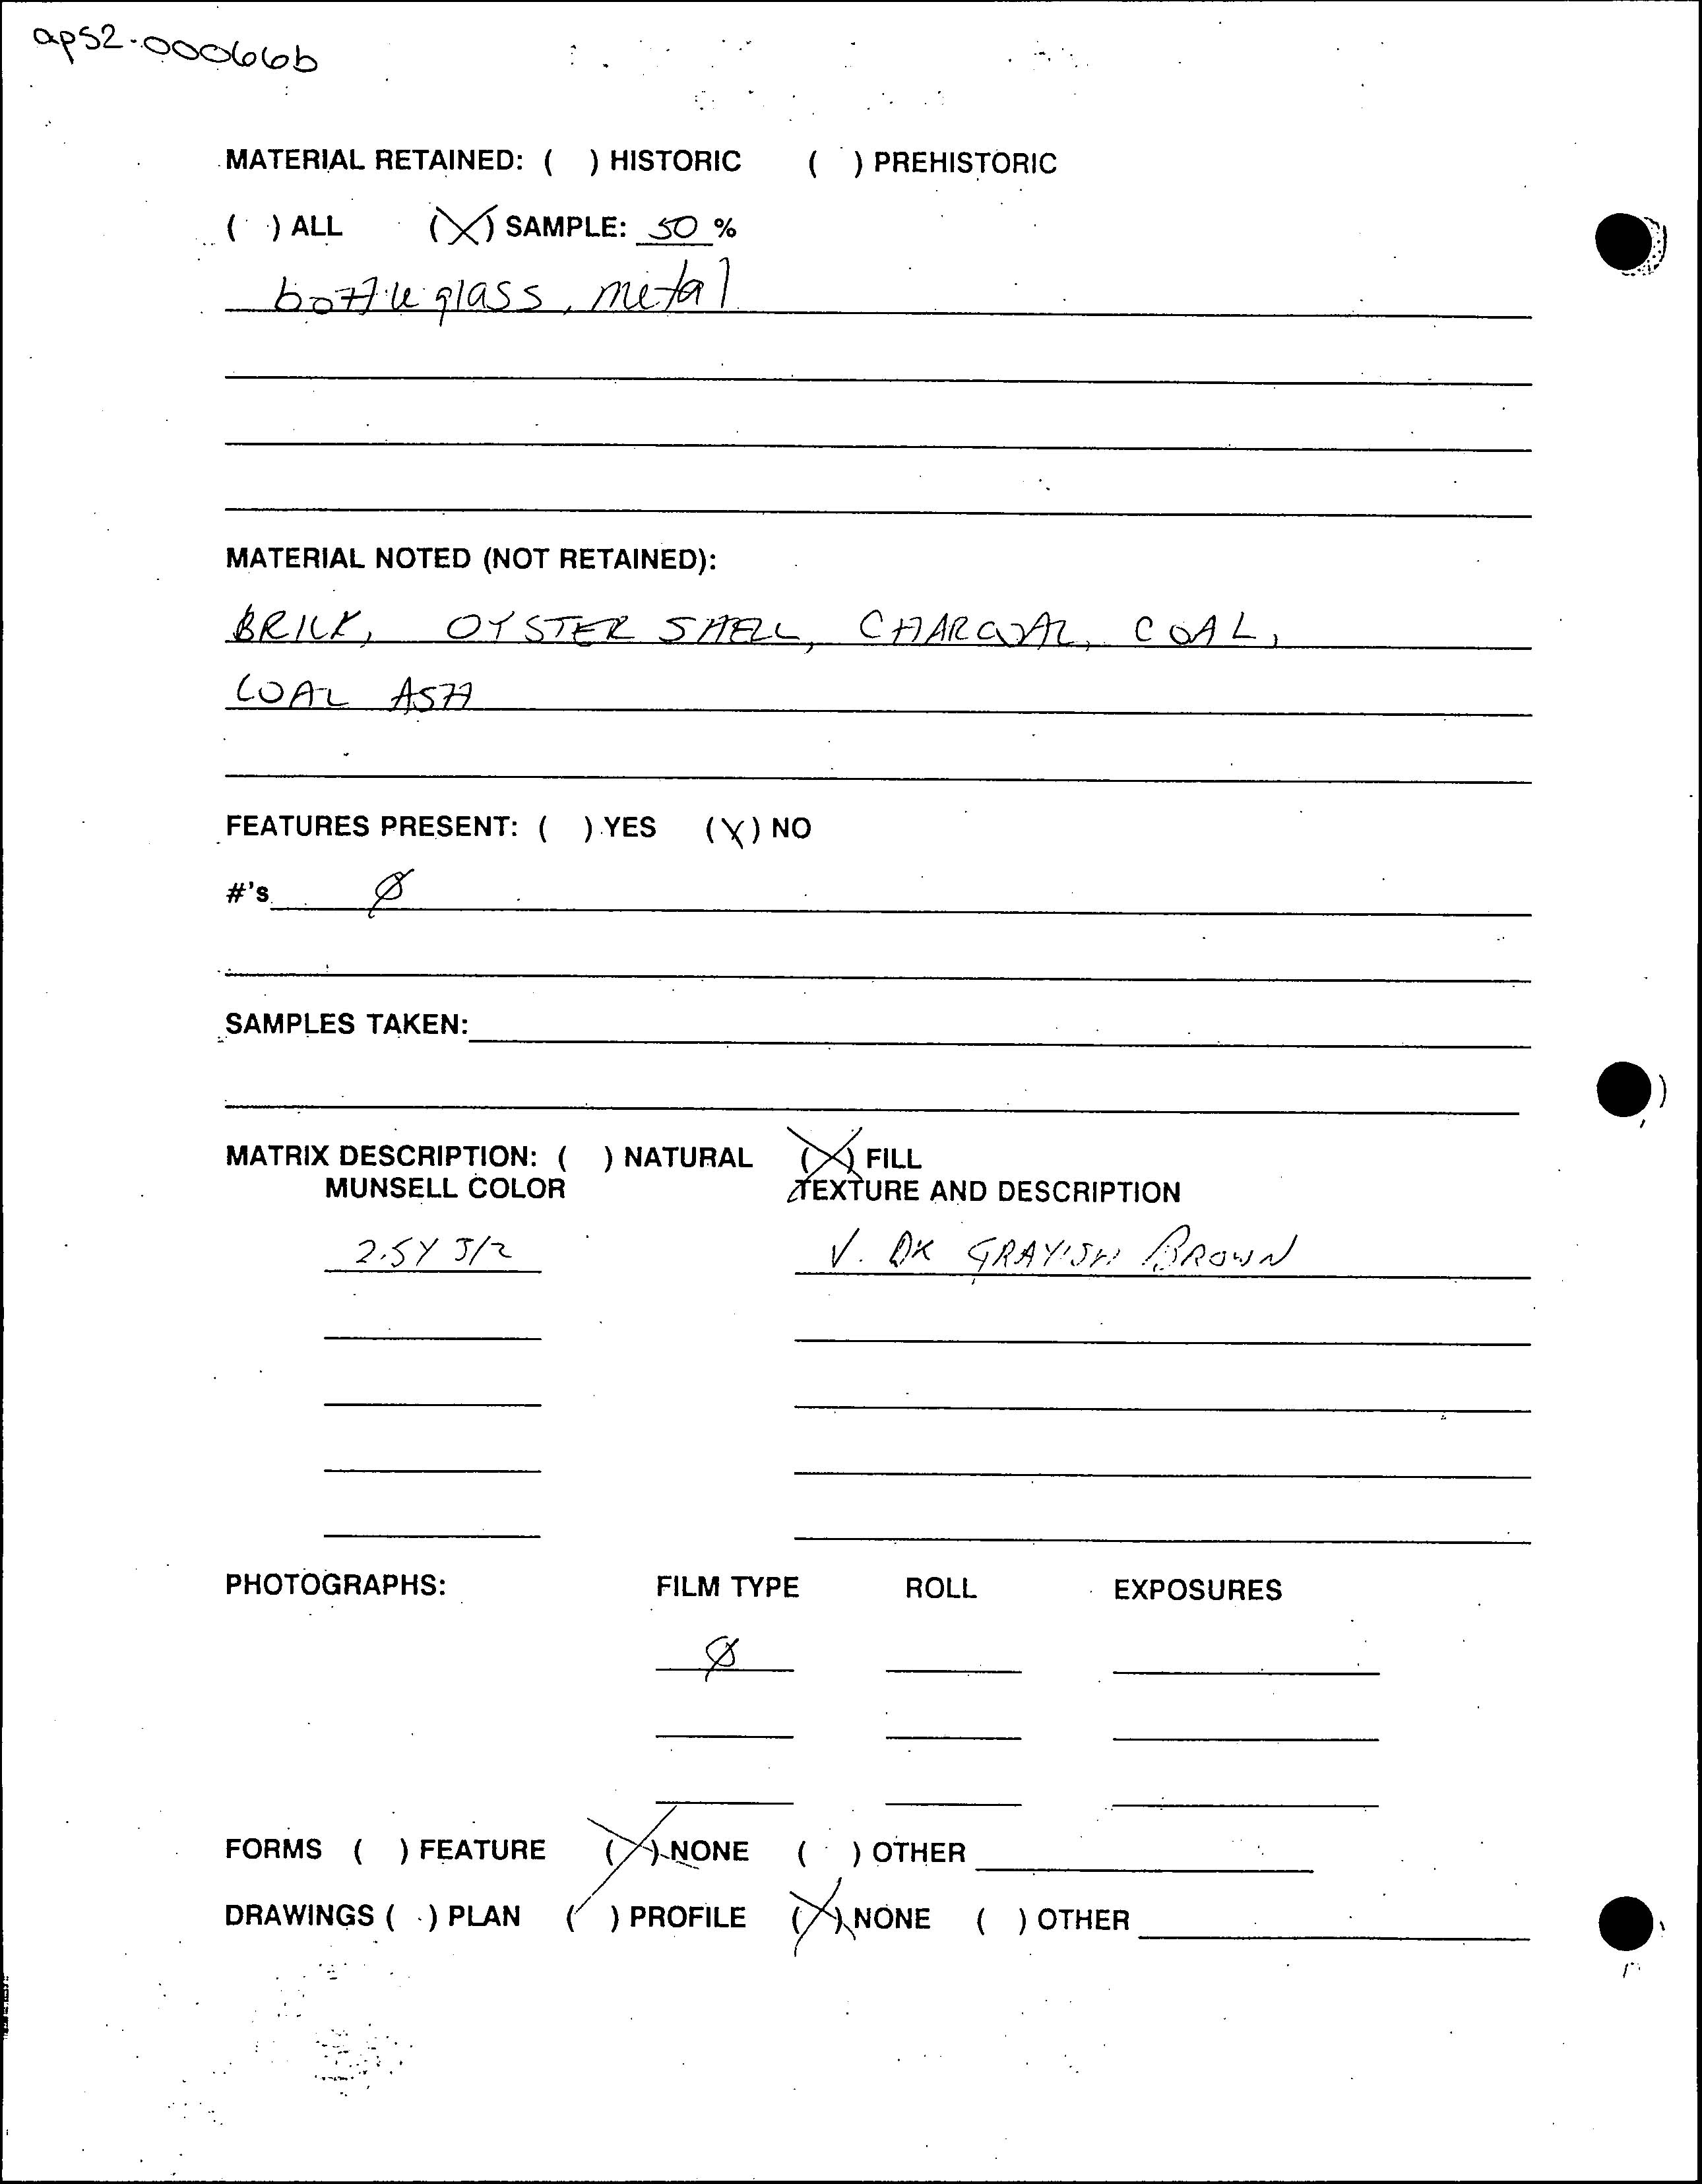 aps2-00066b
MATERIAL RETAINED: ( ) HISTORIC ( ) PREHISTORIC
( ) ALL (X) SAMPLE: 50 %
bottle glass, metal
MATERIAL NOTED (NOT RETAINED):
BRICK, OYSTER SHELL, CHARCOAL, COAL,
COAL ASH
FEATURES PRESENT: ( ) YES (X) NO
#'s Ø
SAMPLES TAKEN:
MATRIX DESCRIPTION: ( ) NATURAL (X) FILL
MUNSELL COLOR TEXTURE AND DESCRIPTION
2.5Y 3/2 V. DK GRAYISH BROWN
PHOTOGRAPHS: FILM TYPE ROLL EXPOSURES
Ø
FORMS ( ) FEATURE (X) NONE ( ) OTHER
DRAWINGS ( ) PLAN ( ) PROFILE (X) NONE ( ) OTHER